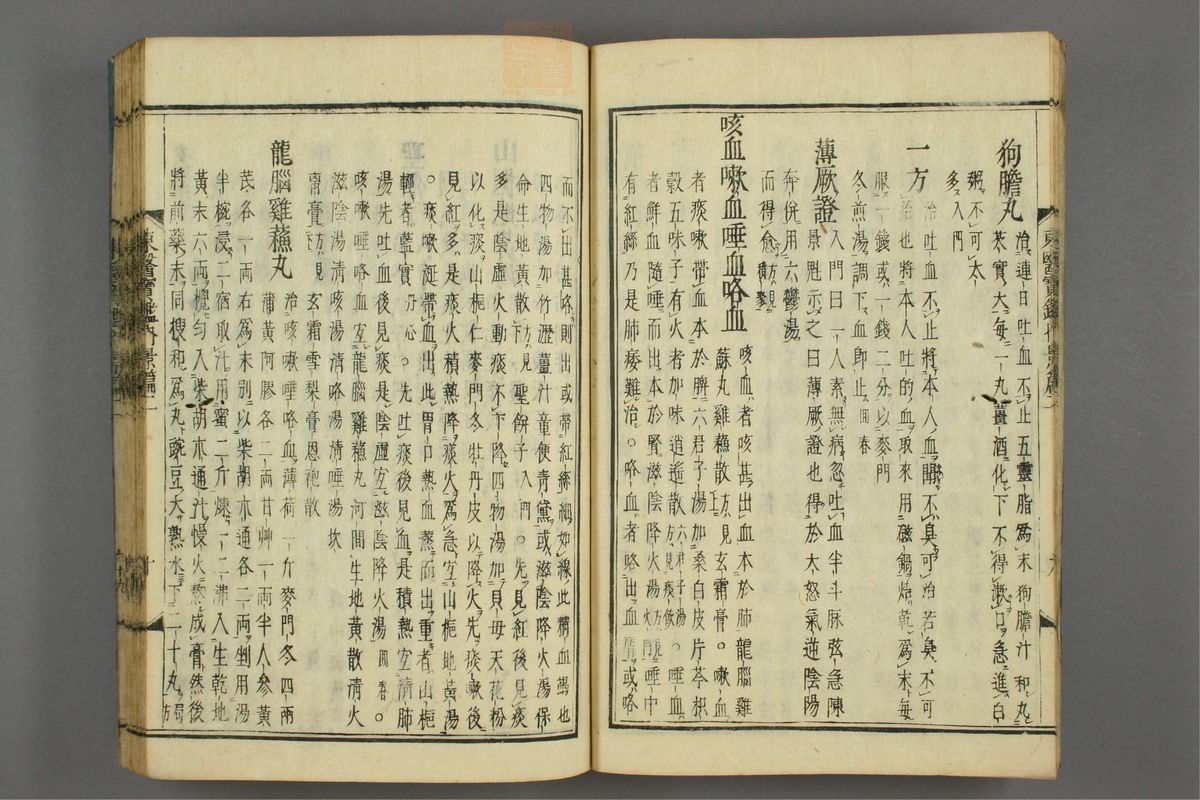 狗膽丸 治連日吐血不止五靈脂爲末狗膽汁和丸
芡實大每一丸薑酒化下不得漱口急進白
粥不可太
多入門
一方 治吐血不止將本人血聞不臭可治若臭不可
治也將本人吐的血取來用磁鍋焙乾爲末每
服一錢或一錢二分以麥門
冬煎湯調下血即止回春
薄厥證 入門曰一人素無病忽吐血半斗脉弦急陳
景魁示之曰薄厥證也得於大怒氣逆陰陽
奔併用六鬱湯
而得愈
咳血嗽血唾血咯血 咳血者咳甚出血本於肺龍腦雞
蘇丸雞蘇散方見上玄霜膏嗽血
者痰嗽帶血本於脾六君子湯加桑白皮片芩枳
穀五味子有火者加味逍遙散六君子湯方見痰飮唾血
者鮮血隨唾而出本於腎滋陰降火湯方見火門唾中
有紅絲乃是肺痿難治咯血者咯出血屑或咯
而不出甚咯則出或帶紅絲細如線此精血竭也
四物湯加竹瀝薑汁童便青黛或滋陰降火湯保
命生地黃散方見下聖餠子入門先見紅後見痰
多是陰虛火動痰不下降四物湯加貝母天花粉
以化痰山梔仁麥門冬牡丹皮以降火先痰嗽後
見紅多是痰火積熱降痰火爲急宜山梔地黃湯
痰嗽涎帶血出此胃口熱血蒸而出重者山梔
輕者藍實丹心先吐痰後見血是積熱宜清肺
湯先吐血後見痰是陰虛宜滋陰降火湯回春
咳嗽唾咯血宜龍腦雞蘇丸河間生地黃散清火
滋陰湯清咳湯清咯湯清唾湯坎
离膏方見玄霜雪梨膏恩袍散
龍腦雞蘇丸 治咳嗽唾咯血薄荷一斤麥門冬四兩
蒲黃阿膠各二兩甘艸一兩半人參黃
芪各一兩右爲末別以柴胡木通各二兩剉用湯
半椀浸二宿取汁用蜜二斤煉一二沸入生乾地
黃末六兩攪匀入柴胡木通汁慢火熬成膏然後
將前藥末同搜和爲丸豌豆大熱水下二十丸局方